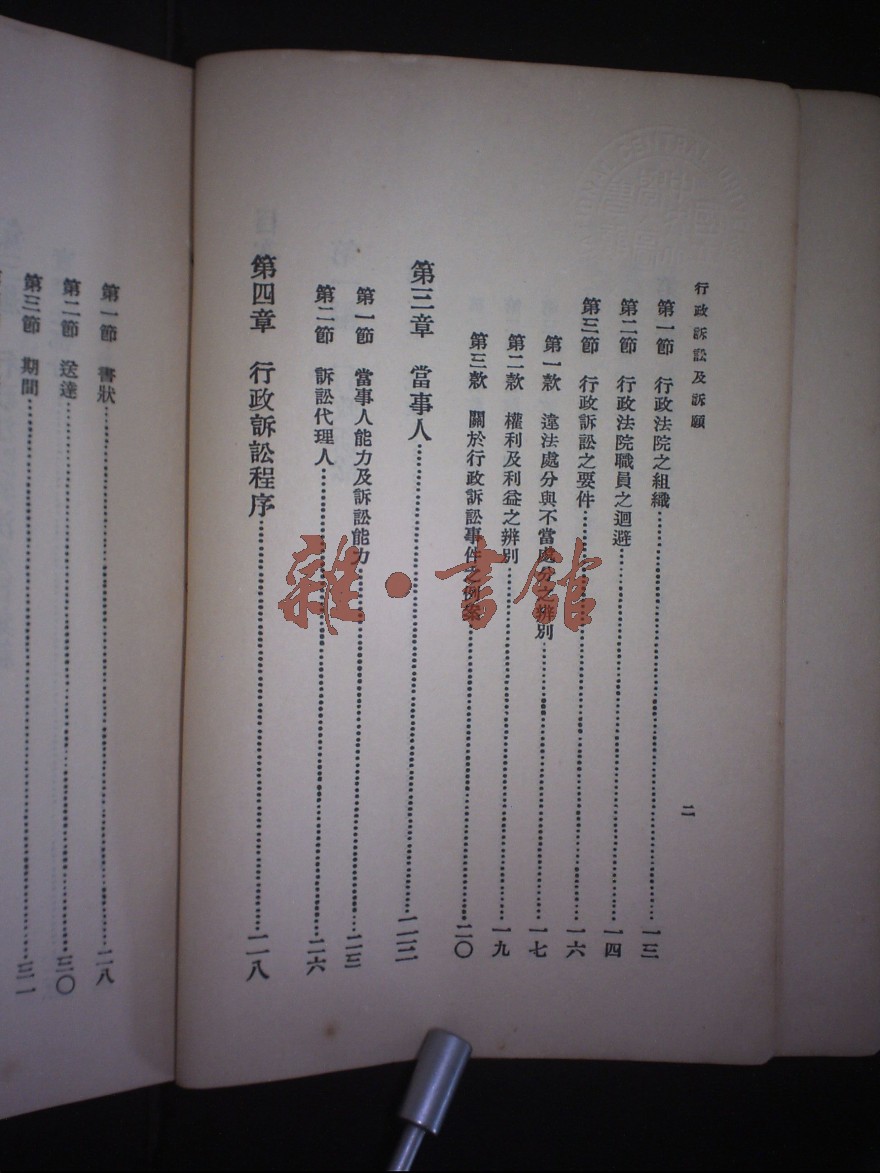 行政訴訟及訴願
二
第一節　行政法院之組織……一三
第二節　行政法院職員之迴避……一四
第三節　行政訴訟之要件……一六
第一款　違法處分與不當處分之辨別……一七
第二款　權利及利益之辨別……一九
第三款　關於行政訴訟事件之例案……二〇
第三章　當事人……二三
第一節　當事人能力及訴訟能力……二三
第二節　訴訟代理人……二六
第四章　行政訴訟程序……二八
第一節　書狀……二八
第二節　送達……三〇
第三節　期間……三一
雜·書館
CENTRAL